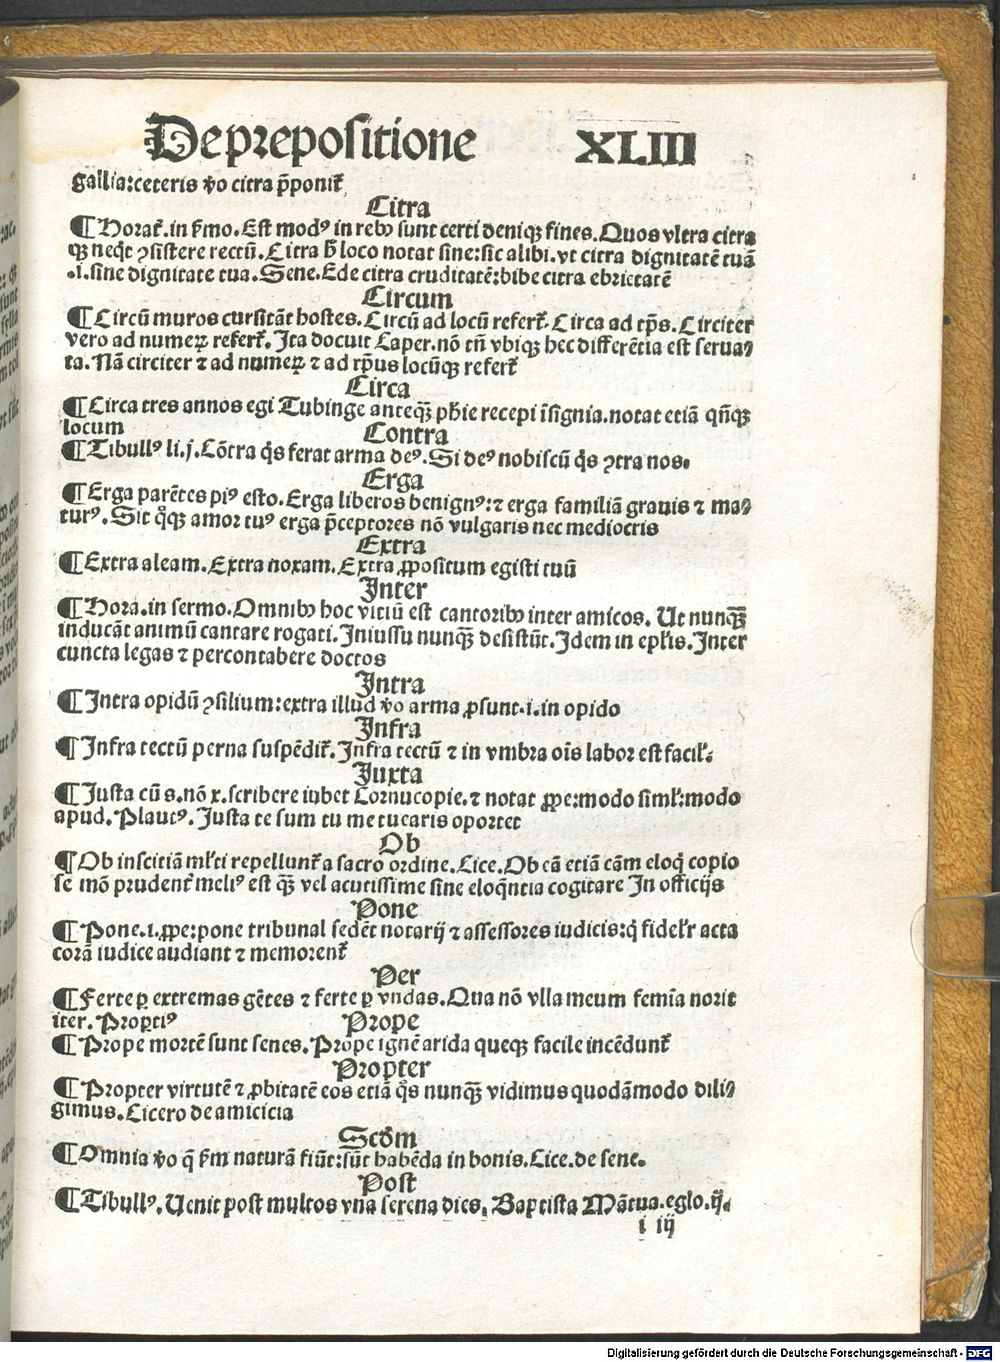 De prepositione XLIII
gallia:ceteris ꝟo citra p̄poniť
Citra
¶ Horať. in ẜmo. Est modꝰ in rebꝫ sunt certi deniqꝫ fines. Quos vltra citra
qꝫ neq̇t ꝯsistere rectū. Citra h̄ loco notat sine: sic alibi. vt citra dignitatē tuā
.i. sine dignitate tua. Sene. Ede citra cruditatē: bibe citra ebrietatē
Circum
¶ Circū muros cursitāt hostes. Circū ad locū referť. Circa ad tp̄s. Circiter
vero ad numeꝝ referť. Ita docuit Caper. nō tn̄ vbiqꝫ hec differētia est serua⸗
ta. Nā circiter ⁊ ad numeꝝ ⁊ ad tp̄us locūqꝫ referť
Circa
¶ Circa tres annos egi Tubinge anteqꝫ̄ phīe recepi īsignia. notat etiā qn̄qꝫ
locum
Contra
¶ Tibullꝰ li. j. Cōtra q̇s ferat arma deꝰ. Si deꝰ nobiscū q̇s ꝯtra nos.
Erga
¶ Erga parētes piꝰ esto. Erga liberos benignꝰ: ⁊ erga familiā grauis ⁊ ma⸗
turꝰ. Sit qͦqꝫ amor tuꝰ erga p̄ceptores nō vulgaris nec mediocris
Extra
¶ Extra aleam. Extra noxam. Extra ꝓpositum egisti tuū
Inter
¶ Hora. in sermo. Omnibꝫ hoc vitiū est cantoribꝫ inter amicos. Ut nunqꝫ̄
inducāt animū cantare rogati. Iniussu nunqꝫ̄ desistūt. Idem in epl̄is. Inter
cuncta legas ⁊ percontabere doctos
Intra
¶ Intra opidū ꝯsilium: extra illud ꝟo arma ꝓsunt. i. in opido
Infra
¶ Infra tectū perna suspēdiť. Infra tectū ⁊ in vmbra oīs labor est facil'.
Iuxta
¶ Iusta cū s. nō x. scribere iubet Cornucopie. ⁊ notat ꝓpe: modo siml': modo
apud. Plautꝰ. Iusta te sum tu me tucaris oportet
Ob
¶ Ob inscitiā ml'ti repellunť a sacro ordine. Cice. Ob eā etiā cām eloq̇ copio
se mō prudenť meliꝰ est qꝫ̄ vel acutissime sine eloq̄ntia cogitare In officijs
Pone
¶ Pone. i. ꝓpe: pone tribunal sedēt notarij ⁊ assessores iudicis: q̇ fidel'r acta
corā iudice audiant ⁊ memorenť
Per
¶ Ferte ꝑ extremas gētes ⁊ ferte ꝑ vndas. Qua nō vlla meum femīa norit
iter. Proꝑtiꝰ
Prope
¶ Prope mortē sunt senes. Prope ignē arida queqꝫ facile incēdunť
Propter
¶ Propter virtutē ⁊ ꝓbitatē eos etiā qͦs nunqꝫ̄ vidimus quodāmodo dili⸗
gimus. Cicero de amicicia
Scd̄m
¶ Omnia ꝟo q̄ ẜm naturā fiūt: sūt habēda in bonis. Cice. de sene.
Post
¶ Tibullꝰ. Uenit post multos vna serena dies. Baptista Mātua. eglo. ij.
i iij
Digitalisierung gefördert durch die Deutsche Forschungsgemeinschaft - DFG